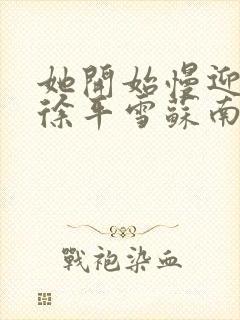 她開始慢迎
徐平雪蘇南
戰袍染血